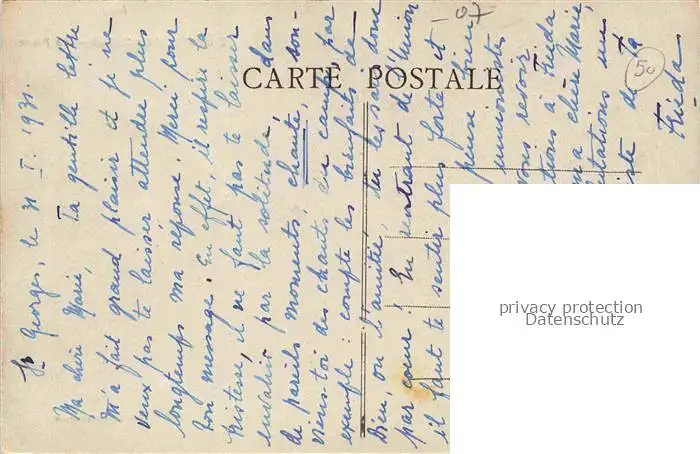 CARTE POSTALE
50
- 07
St Georges, le 31 I. 1931.
Ma chère Marie, Ta gentille lettre
m'a fait grand plaisir et je ne
veux pas te laisser attendre plus
longtemps ma réponse. Merci pour
ton message. En effet, il respire la
tristesse, il ne faut pas te laisser
envahir par la solitude, dans
de pareils moments, chante, sou-
viens-toi des chants du camp, par
exemple: compte les bienfaits de
Dieu, ou l'amitié, tu les sais donc
par cœur! En rentrant de l'Union
il faut te sentir plus forte et
pense
unionistes
vous revoir
à Frieda
ma chère Marie,
de Ta
Frieda
privacy protection
Datenschutz